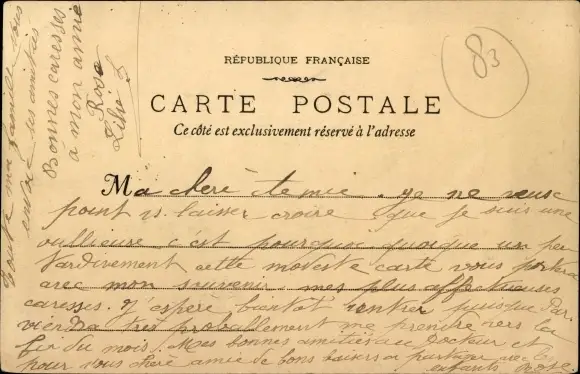 RÉPUBLIQUE FRANÇAISE
CARTE POSTALE
Ce côté est exclusivement réservé à l'adresse
83
Ma chère amie. je ne veux
point vs. laisser croire que je suis une
oublieuse c'est pourquoi quoique un peu
tardivement cette modeste carte vous portera
avec mon souvenir mes plus affectueuses
caresses. J'espère bientôt rentrer puisque Par.
viendra très probablement me prendre vers la
fin du mois. Mes bonnes amitiés au Docteur et
pour vous chère amie de bons baisers à partager avec les
enfants Rose.
Toute ma famille vous
envoie ses amitiés
Bonnes caresses
à mon amie
Rose